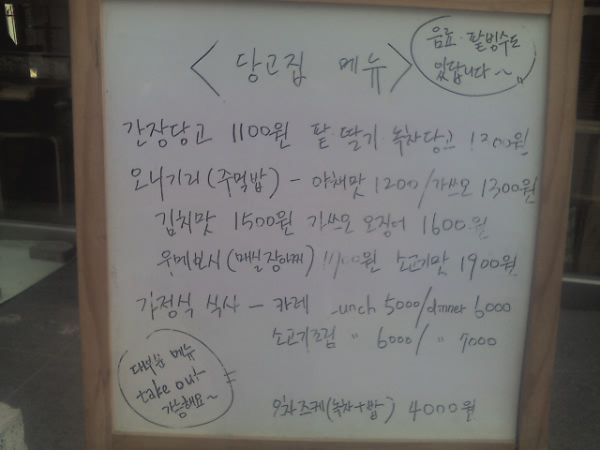 <당고집 메뉴>
음료·팥빙수도
있답니다~
간장당고 1100원 팥·딸기·녹차당고 1200원
오니기리(주먹밥) - 야채맛 1200/가쓰오 1300원
김치맛 1500원 가쓰오 오징어 1600원
우메보시(매실장아찌) 원 소고기맛 1900원
가정식 식사 - 카레 unch 5000/dinner 6000
소고기조림 " 6000/ " 7000
대부분 메뉴
take out
가능해요~
오차즈케(녹차+밥) 4000원